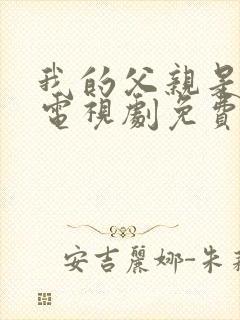 我的父親是
電視劇免費
安吉麗娜-朱